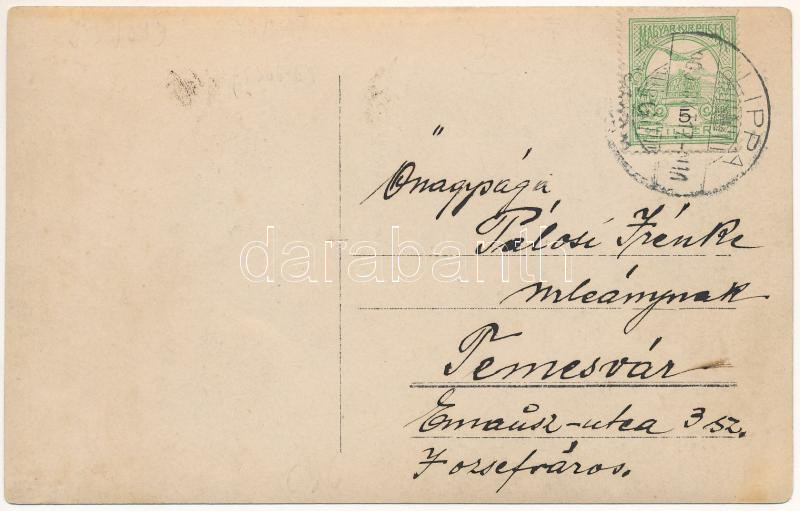 MAGYAR KIR. POSTA
5
LIPPA
Őnagysága
Pálosi Irénke
urleánynak
Temesvár
Emausz-utca 3 sz.
Jozsefváros.
darabanth